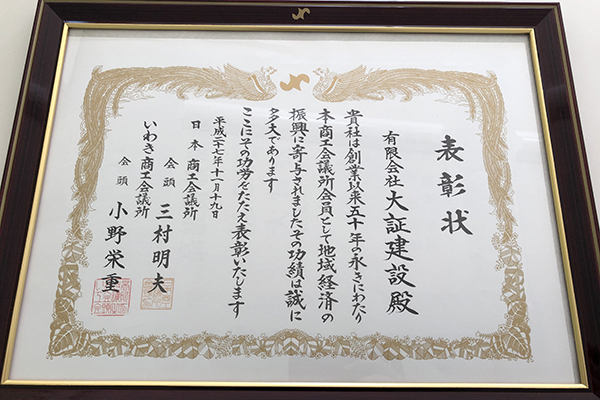 表彰状
有限会社大証建設殿
貴社は創業以来五十年の永きにわたり
本商工会議所会員として地域経済の
振興に寄与されましたその功績は誠に
多大であります
ここにその功労をたたえ表彰いたします
平成二十七年十一月十九日
日本商工会議所
会頭 三村明夫
いわき商工会議所
会頭 小野栄重